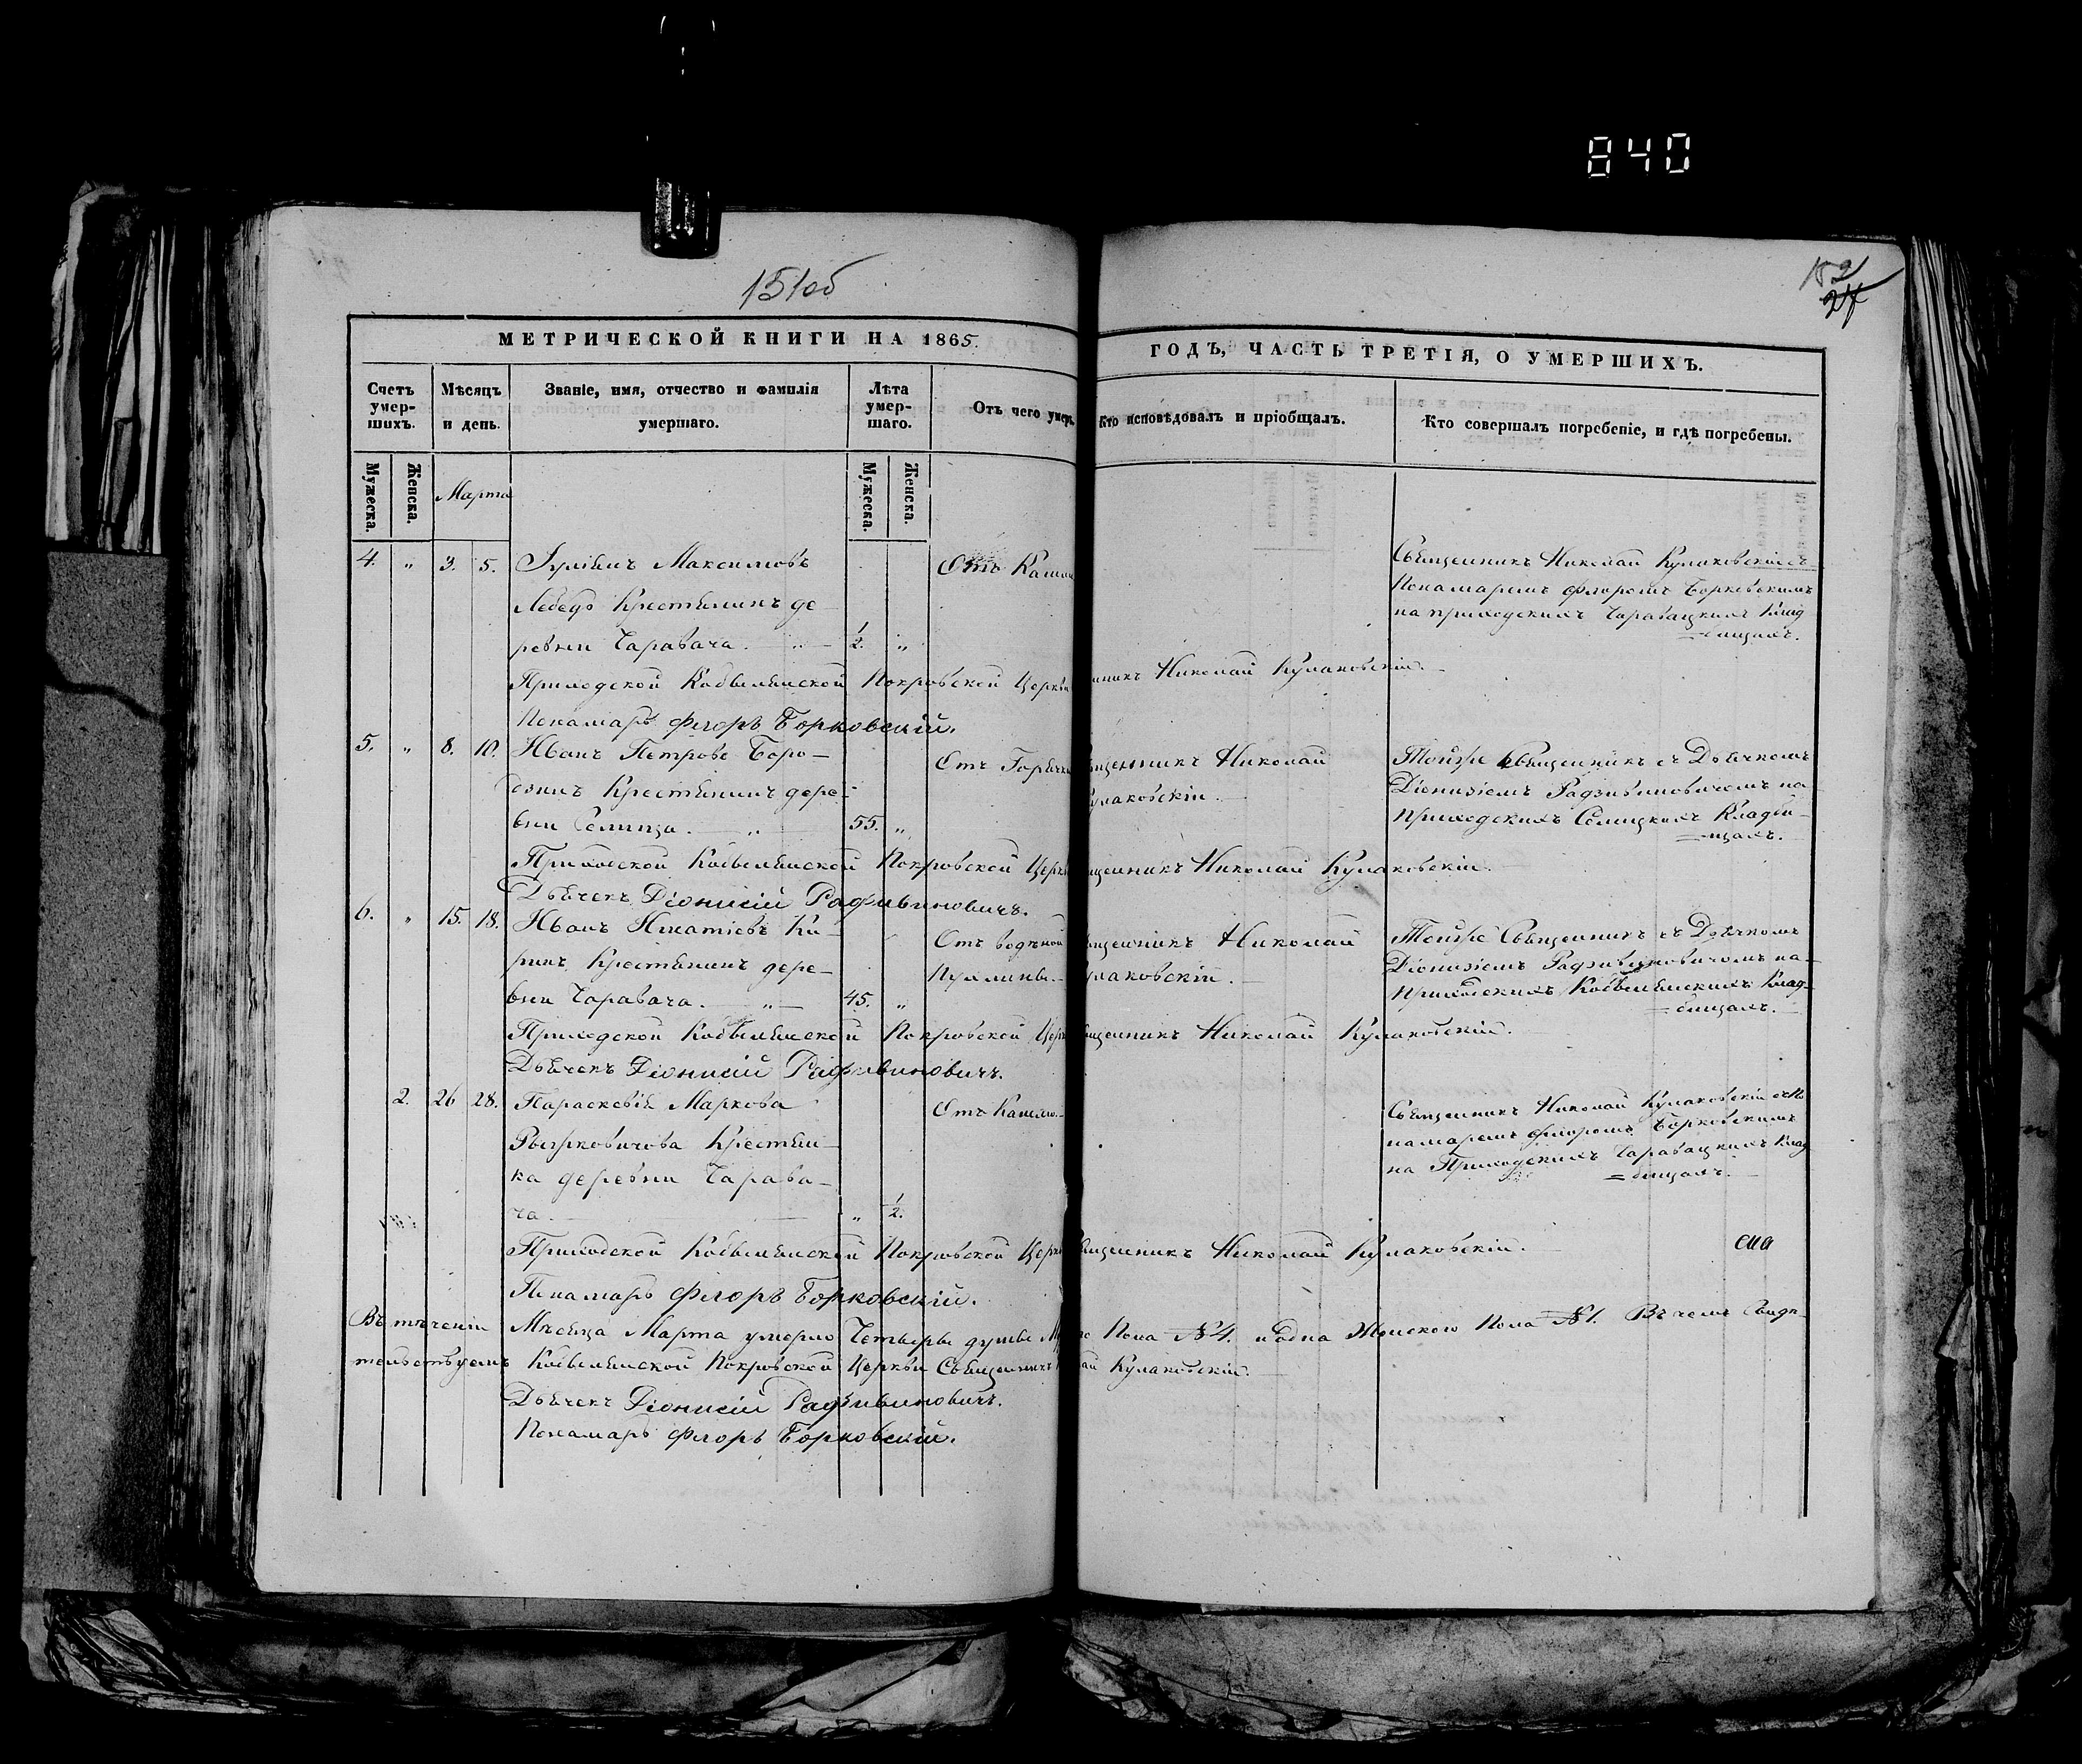 840
151об
152
27
МЕТРИЧЕСКОЙ КНИГИ НА 1865.
ГОДЪ, ЧАСТЬ ТРЕТІЯ, О УМЕРШИХЪ.
Счетъ умер-шихъ.
Мѣсяцъ и день.
Званіе, имя, отчество и фамилія умершаго.
Лѣта умер-шаго.
Отъ чего умер.
Кто исповѣдовалъ и пріобщалъ.
Кто совершалъ погребеніе, и гдѣ погребены.
Мужеска.
Женска.
Марта
Мужеска.
Женска.
4. „ 3. 5. Іуліянъ Максимовъ
Лебедь Крестьянинъ де
ревни Чаравача. „ 1/2. „
Отъ Кашлю
Священникъ Николай Кулаковскій съ
Понамаремъ Флоромъ Борковскимъ
на приходскихъ Чаравацкихъ Клад
=бищахъ.
Приходской Кобыльской Покровской Церкви
нникъ Николай Кулаковскій.
Понамарь Флоръ Борковскій.
5. „ 8. 10. Иванъ Петровъ Боро-
Крестьянинъ дере-
вни Селища. „ 55. „
Отъ Горячк
Священникъ Николай
Кулаковскій.
Тойже Священникъ съ Дьячкомъ
Діонизіемъ Радзивиновичемъ на
приходскихъ Селицкихъ Кладби-
=щахъ.
Приходской Покровской Церкв
ященникъ Николай Кулаковскій.
Дьячекъ Діонисій Радзивиновичъ.
6. „ 15. 18. Иванъ Игнатіевъ Ки-
рикъ Крестьянинъ дере-
вни Чаравача. „ 45. „
Отъ водяной
Пухлины.
ященникъ Николай
Кулаковскій.
Тойже Священникъ съ Дьячкомъ
Діонизіемъ Радзивиновичемъ на
приходскихъ Клад-
=бищахъ.
Приходской Покровской Церк
ященникъ Николай Кулаковскій.
Дьячекъ Діонисій Радзивиновичъ.
2. 26 28. Параскевія Маркова
Рыжковичова Крестьян-
ка деревни Чарава-
ча. „ 1/2.
Отъ Кашлю.
Священникъ Николай Кулаковскій съ По
намаремъ Флоромъ Борковскимъ
на Приходскихъ Чаравацкихъ Клад
=бищахъ.
Приходской Покровской Церкв
ященникъ Николай Кулаковскій.
Понамарь Флоръ Борковскій.
Въ теченіи Мѣсяца Марта умерло Четыры душы М го Пола №4. и Одна Женского Пола №1. Въ чемъ Свидѣ-
тельствуемъ Покровской Церкви Священникъ ай Кулаковскій.
Дьячекъ Діонисій Радзивиновичъ.
Понамарь Флоръ Борковскій.